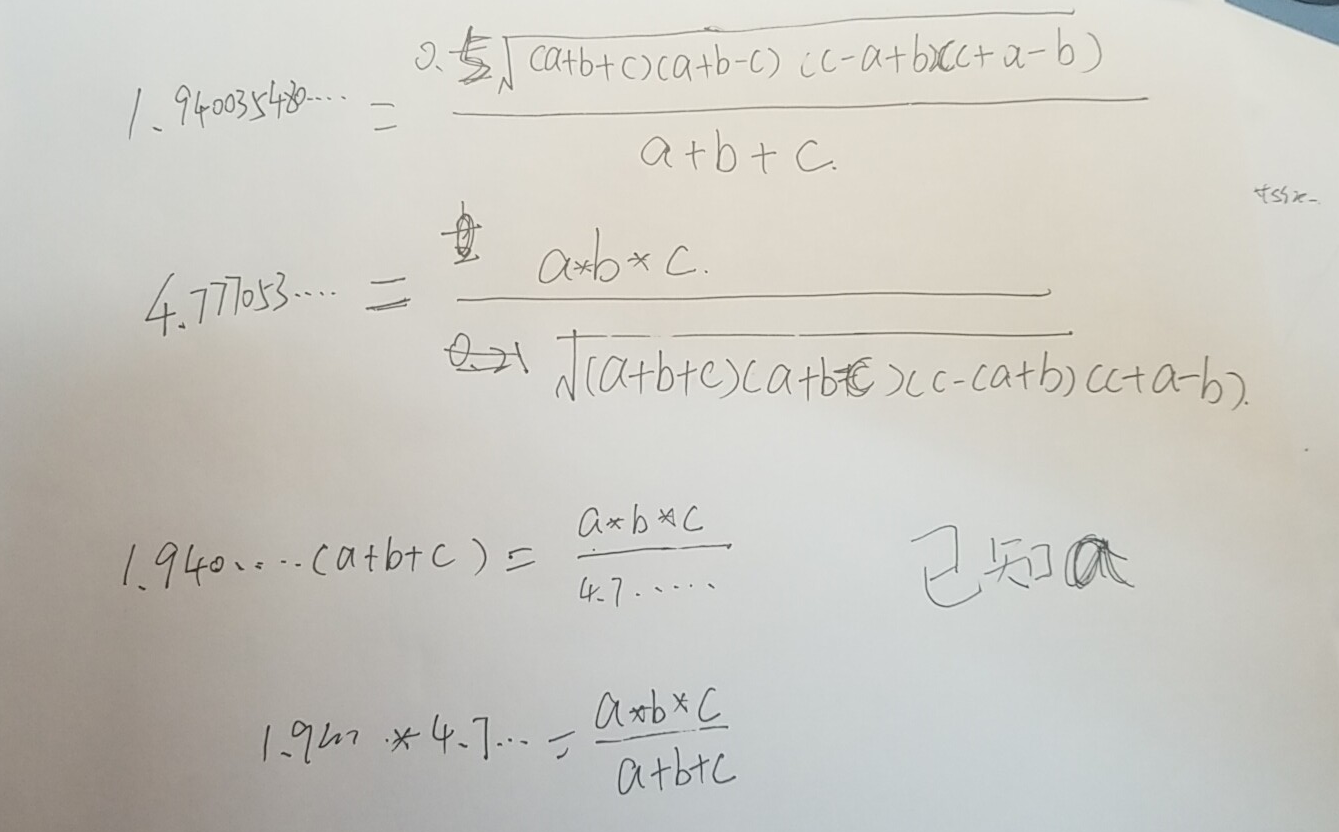 1.940035480.... = 0.5√(a+b+c)(a+b-c)(c-a+b)(c+a-b)
a+b+c.
4.777053.... = a*b*c.
√(a+b+c)(a+b-c)(c-(a+b)(c+a-b).
1.940.....(a+b+c) = a*b*c
4.7......
已知a
1.940 .* 4.7... = a*b*c
a+b+c